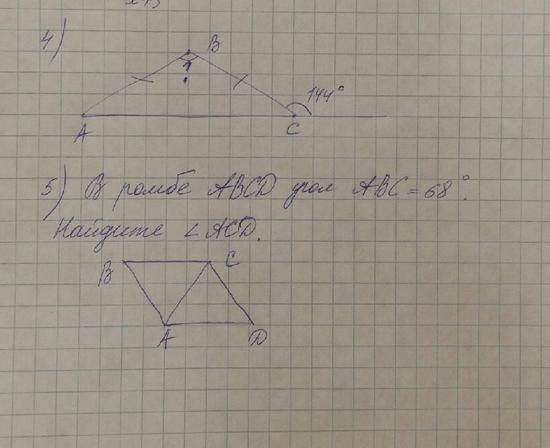 4)
B
?
144°
A
C
5) В ромбе ABCD угол ABC = 68°.
Найдите ∠ACD.
B
C
A
D